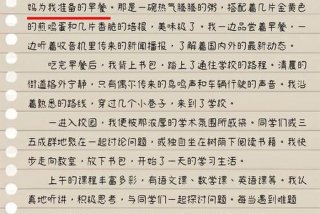 妈为我准备的早餐。那是一碗热气腾腾的粥，搭配着几片金黄色
的煎鸡蛋和几片香脆的培根，美味极了。我一边品尝着早餐，一
边听着收音机里传来的新闻播报，了解着国内外的最新动态。
吃完早餐后，我背上书包，踏上了通往学校的路程。清晨的
街道格外宁静，只有偶尔传来的鸟鸣声和车辆行驶的声音。我沿
着熟悉的路线，穿过几个小巷子，来到了学校。
一进入校园，我便被那浓厚的学术氛围所感染。同学们或三
五成群地聚在一起讨论问题，或独自坐在树荫下阅读书籍。我快
步走向教室，放下书包，开始了一天的学习生活。
上午的课程丰富多彩，有语文课、数学课、英语课等。我认
真地听讲，积极思考，与同学们一起探讨问题。每当遇到难题